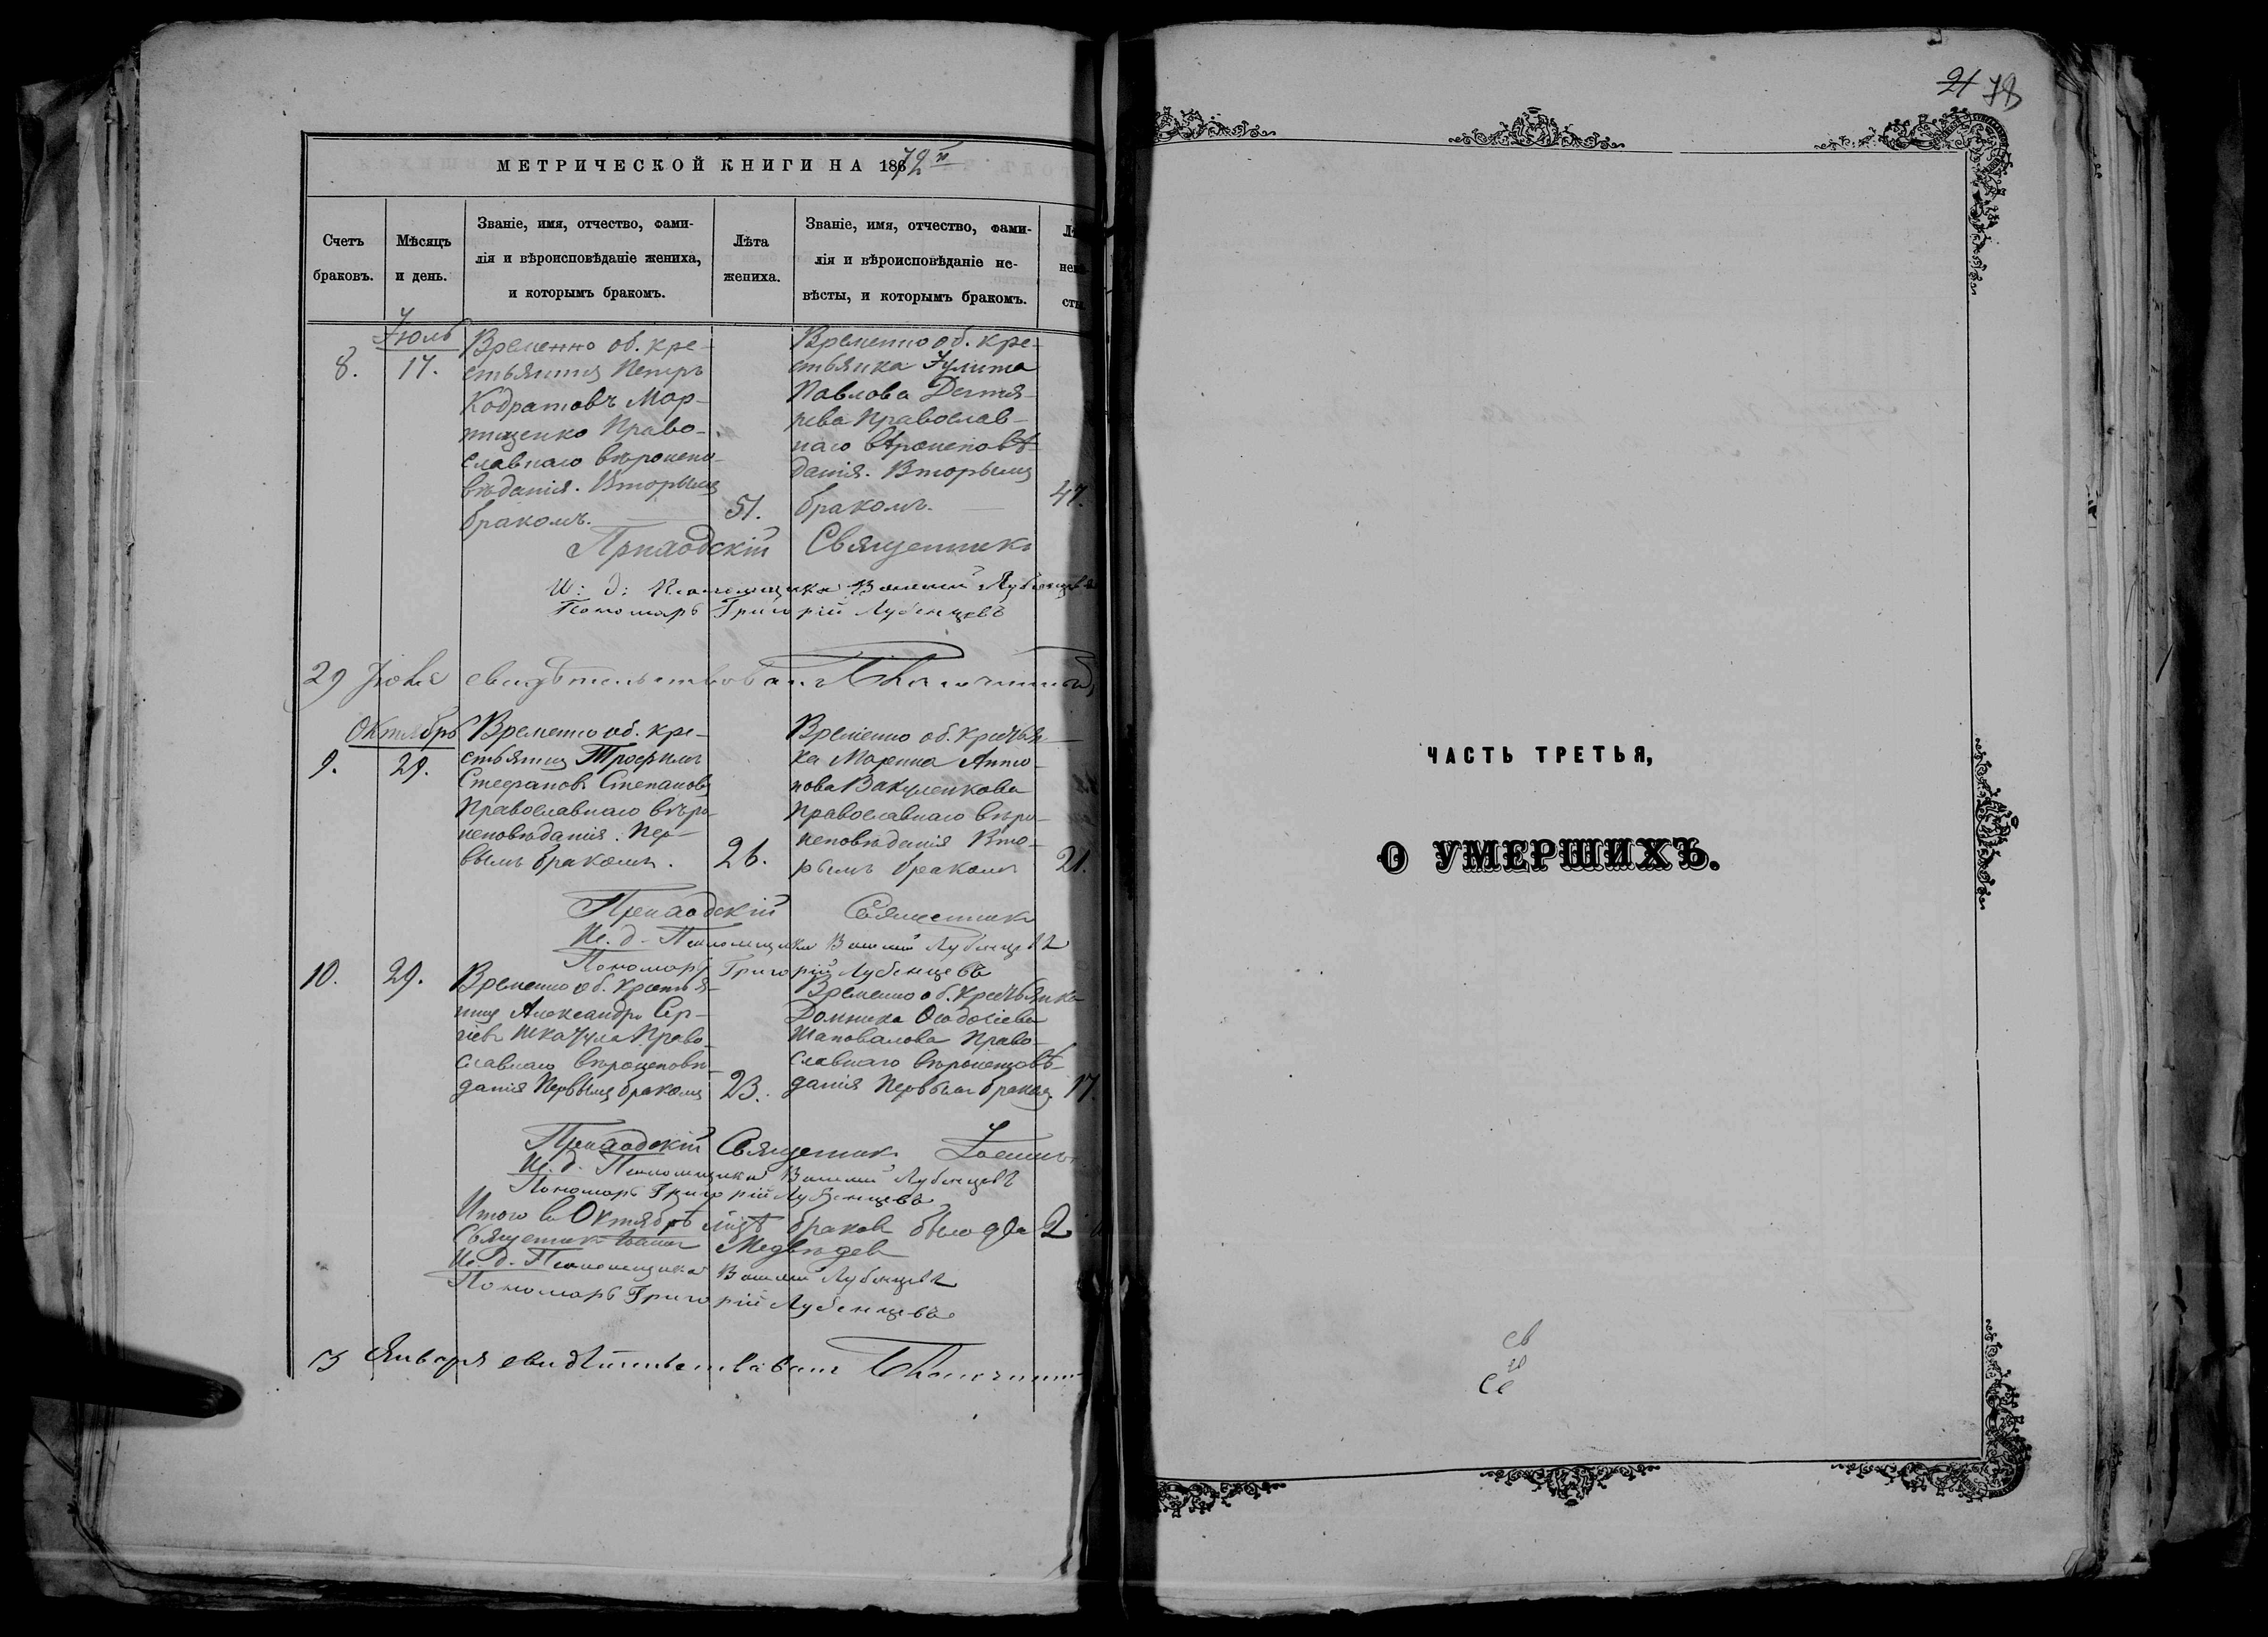 МЕТРИЧЕСКОЙ КНИГИ НА 1872
Счетъ браковъ.
Мѣсяцъ и день.
Званіе, имя, отчество, фами-
лія и вѣроисповѣданіе жениха,
и которымъ бракомъ.
Лѣта жениха.
Званіе, имя, отчество, фами-
лія и вѣроисповѣданіе не-
вѣсты, и которымъ бракомъ.
Июль
8. 17.
Временно об. кре-
стьянинъ Петръ
Кодратовъ Мар-
тыщенко Право-
славнаго вѣроиспо-
вѣданія. Вторымъ
бракомъ. 51.
Временно об. кре-
стьянка Иулита
Павлова Дегтя-
рева Православ-
наго вѣроисповѣ-
данія. Вторымъ
бракомъ. 47.
Приходскій Священникъ
И: д: Псаломщика Василій Лубенцевъ
Пономарь Григорій Лубенцевъ
29 свидѣтельствовалъ Благочинный
Октябрь
9. 29.
Временно об. кре-
стьянинъ Трофимъ
Стефановъ Степановъ
Православнаго вѣро-
исповѣданія. Пер-
вымъ бракомъ. 26.
Временно об. крестьян-
ка Марина Анто-
нова Вакуленкова
Православнаго вѣро-
исповѣданія Вто-
рымъ бракомъ 21.
Приходскій Священникъ
Ис. д. Псаломщика Василій Лубенцевъ
Пономарь Григорій Лубенцевъ
10. 29.
Временно об. крестья-
нинъ Александръ Сер-
гіевъ Шкагула Право-
славнаго вѣроисповѣ-
данія Первымъ бракомъ 23.
Временно об. крестьянка
Домника
Шаповалова Право-
славнаго вѣроисповѣ-
данія Первымъ бракомъ 17.
Приходскій Священникъ Іоаннъ
Ис. д. Псаломщика Василій Лубенцевъ
Пономарь Григорій Лубенцевъ
Итого въ Октябрѣ м-цѣ браковъ было два 2
Священникъ Іоаннъ Медвѣдевъ
Ис. д. Псаломщика Василій Лубенцевъ
Пономарь Григорій Лубенцевъ
Января свидѣтельствовалъ Благочинный
21 78
ЧАСТЬ ТРЕТЬЯ,
О УМЕРШИХЪ.